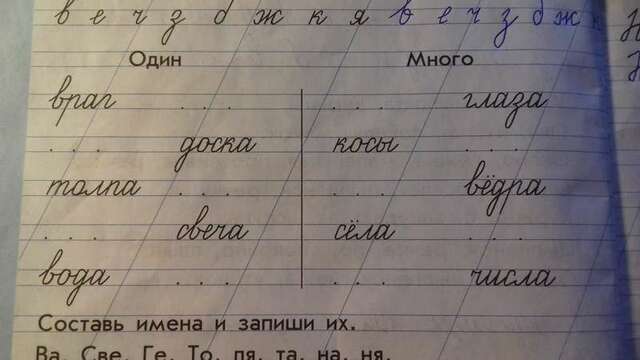 в е ч з б ж к я в е ч з б ж к
Один Много
враг . . . . . . . глаза
. . . доска косы . . .
толпа . . . . . . вёдра
. . . свеча сёла . . .
вода . . . . . . числа
Составь имена и запиши их.
Ва, Све, Ге, То, ля, та, на, ня.